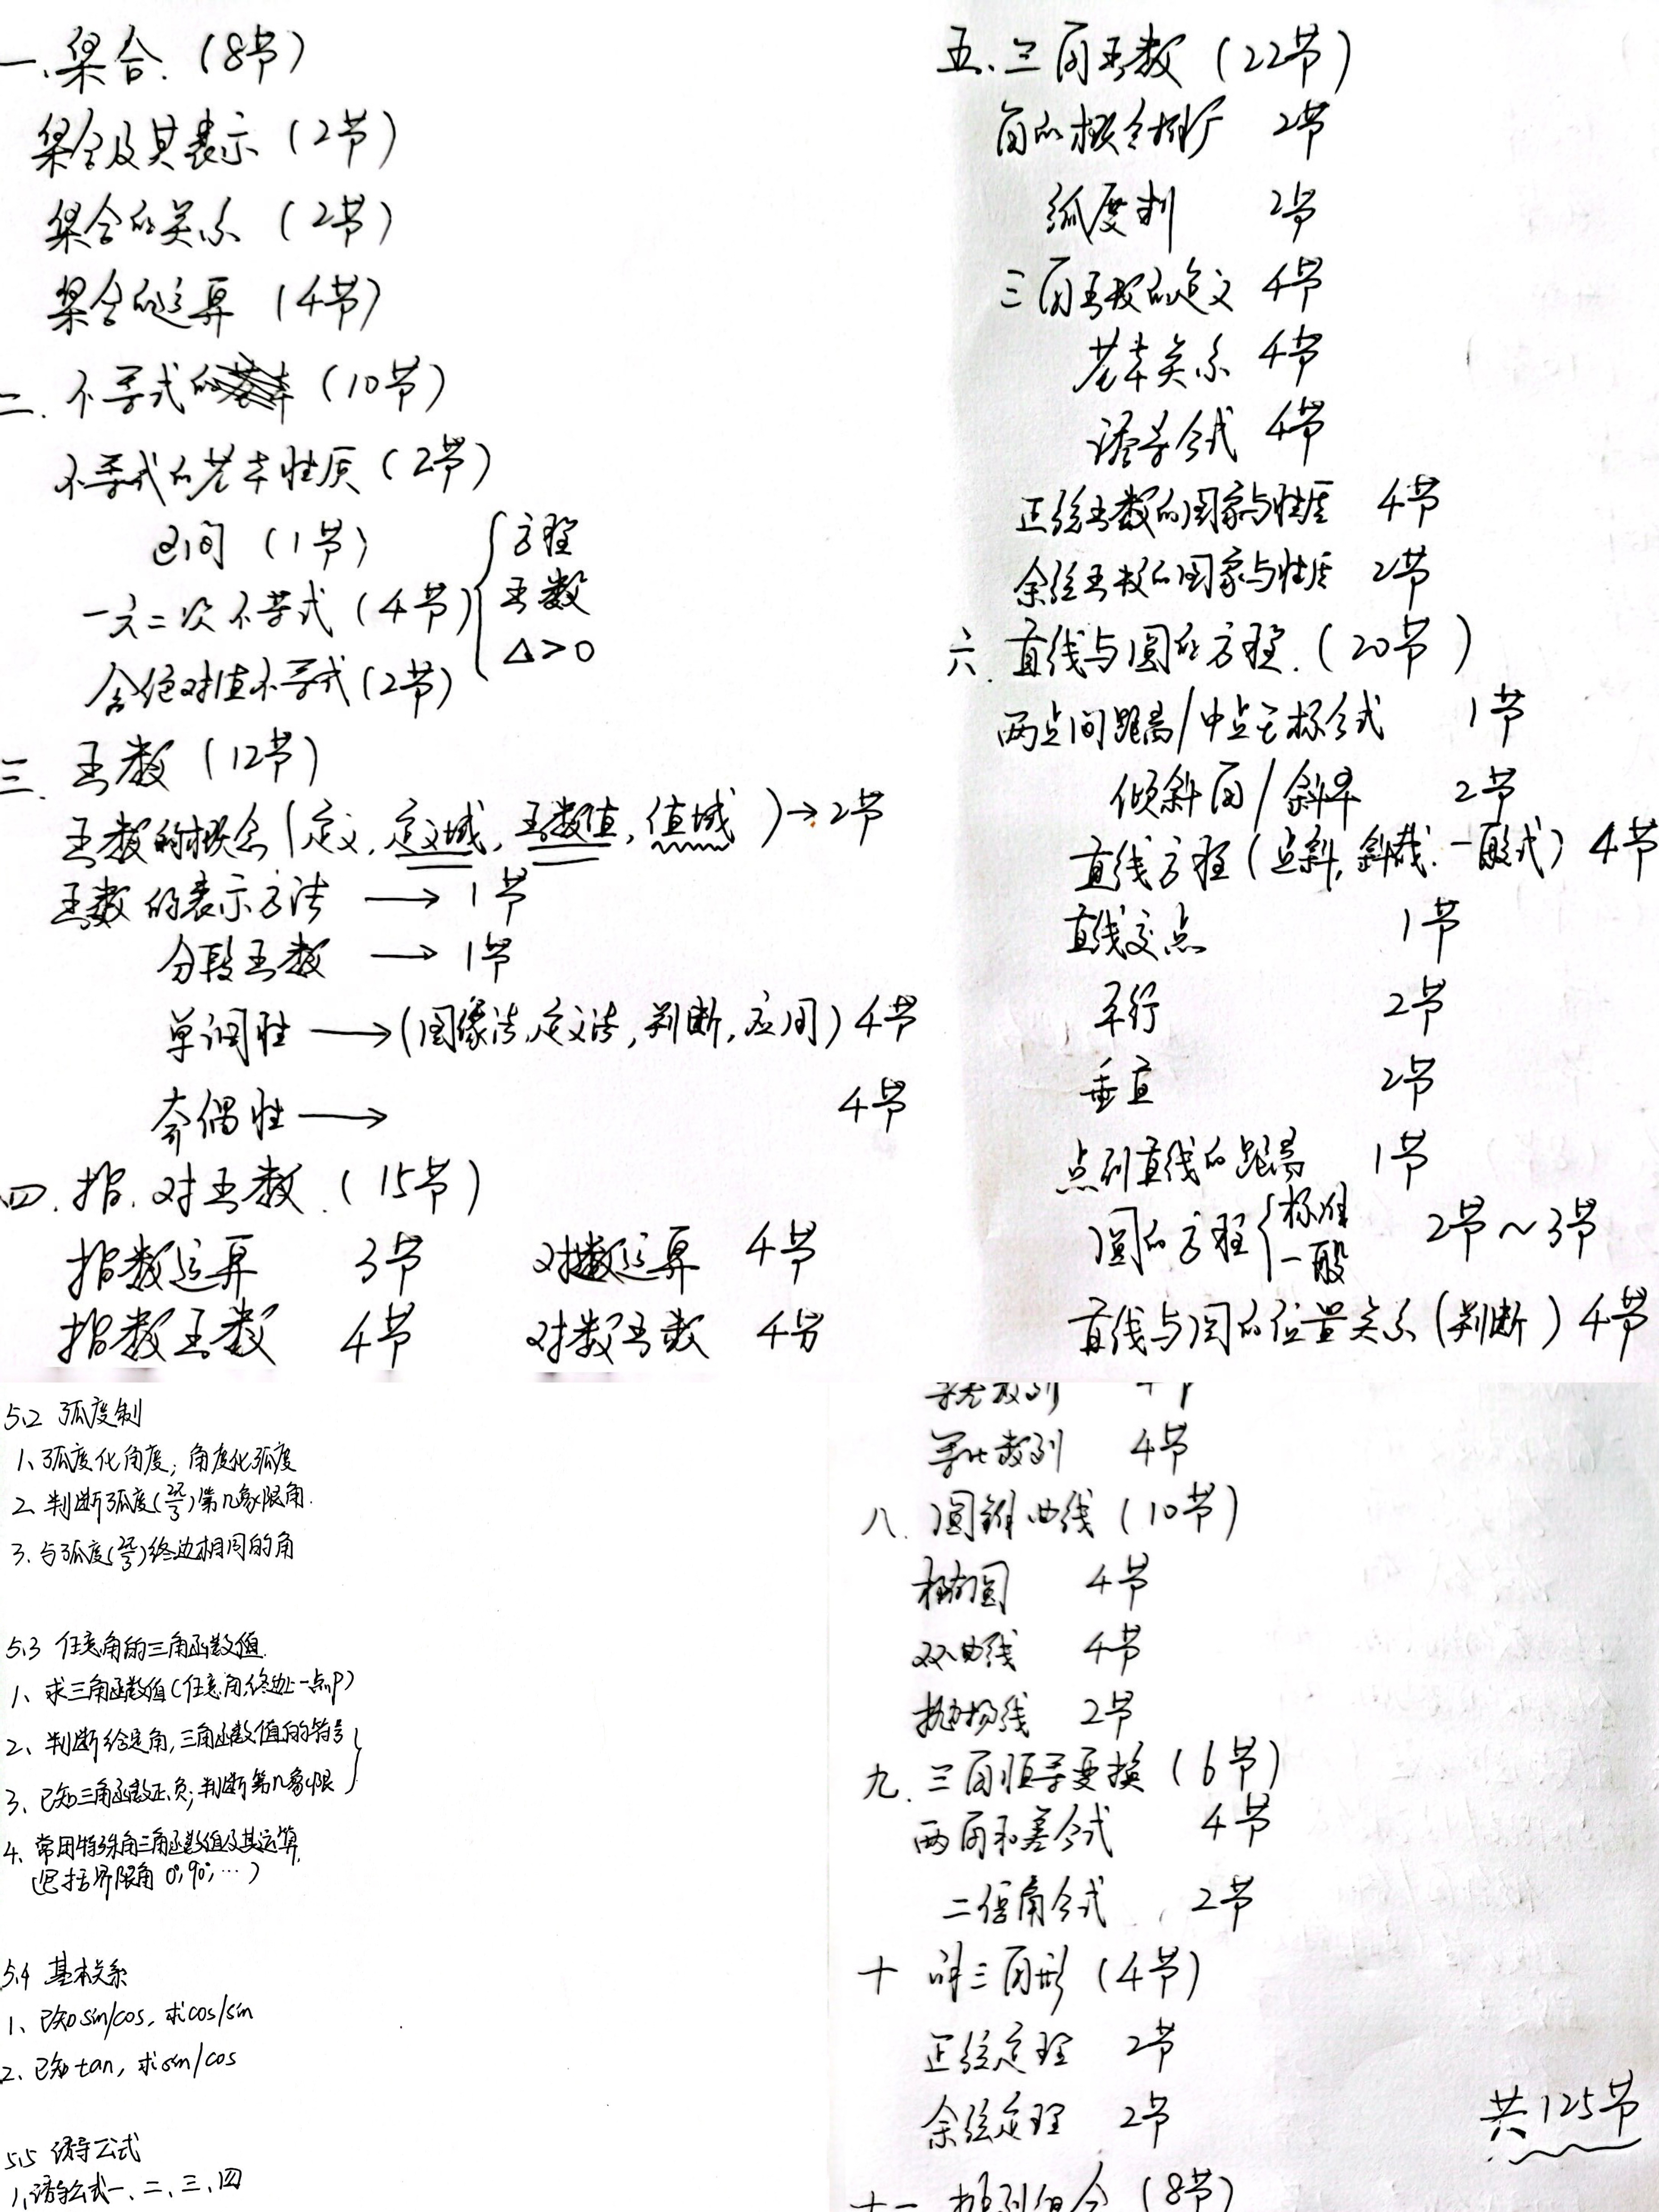 一、集合.（8节）
集合及其表示（2节）
集合的关系（2节）
集合的运算（4节）
二. 不等式的（10节）
不等式的基本性质（2节）
区间（1节）
一元二次不等式（4节）{方程
函数
△>0
含绝对值不等式（2节）
三. 函数（12节）
函数的概念（定义, 定义域, 函数值, 值域）→2节
函数的表示方法 → 1节
分段函数 → 1节
单调性 →（图像法, 定义法, 判断, 应用）4节
奇偶性 → 4节
四. 指. 对函数.（15节）
指数运算 3节 对数运算 4节
指数函数 4节 对数函数 4节
五、三角函数（22节）
角的概念推广 2节
弧度制 2节
三角函数的定义 4节
基本关系 4节
诱导公式 4节
正弦函数的图象与性质 4节
余弦函数的图象与性质 2节
六. 直线与圆的方程.（20节）
两点间距离/中点坐标公式 1节
倾斜角/斜率 2节
直线方程（点斜, 斜截. 一般式）4节
直线交点 1节
平行 2节
垂直 2节
点到直线的距离 1节
圆的方程{标准 2节~3节
一般
直线与圆的位置关系（判断）4节
5.2 弧度制
1、弧度化角度; 角度化弧度
2. 判断弧度(2π/3)第几象限角.
3. 与弧度(2π/3)终边相同的角
5.3 任意角的三角函数值.
1、求三角函数值（任意角终边上一点P）
2、判断给定角, 三角函数值的符号
3、已知三角函数正、负; 判断第几象限
4、常用特殊角三角函数值及其运算.
（包括界限角 0°, 90°, …）
5.4 基本关系
1、已知sin/cos, 求cos/sin
2、已知tan, 求sin/cos
5.5 诱导公式
1、诱导公式一、二、三、四
等差数列 4节
等比数列 4节
八. 圆锥曲线（10节）
椭圆 4节
双曲线 4节
抛物线 2节
九. 三角恒等变换（6节）
两角和差公式 4节
二倍角公式 2节
十 解三角形（4节）
正弦定理 2节
余弦定理 2节
共125节
十一 排列组合（8节）